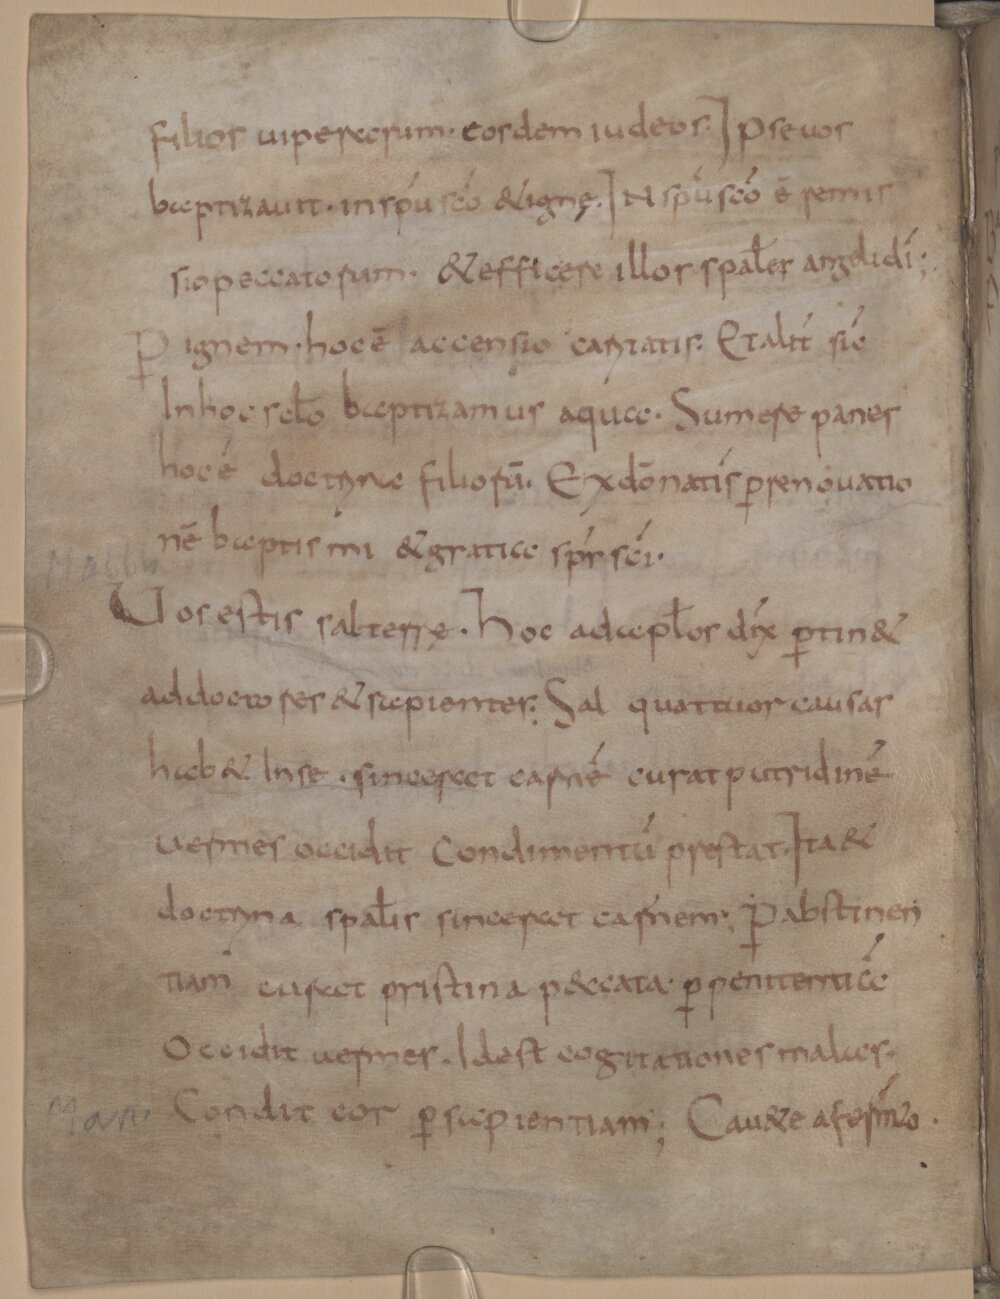 filios uiperarum· eosdem iudeos· Ipse uos
baptizauit· in spū scō & igne. IN spū scō ē remis
sio peccatorum· & efficere illos spaliter angeli dī;
P ignem· hoc ē accensio caritatis· Et alit sic
In hoc sclō baptizamus aqua· Sumere panes
hoc ē doctrina filiorū. Ex dōnatis p renouatio
nē baptismi & gratiae spīr scī·
Uos estis sal terrę· hoc ad aplos dix ptin&
ad doctores & sapientes; Sal quattuor causas
hab& In se· sincerat carnē curat putridinē
uermes occidit Condimentū prestat. Ita &
doctrina spalis sincerat carnem; P abstinen
tiam curat pristina p&cata· p penitentiā
Occidit uermes· Id est cogitationes malas·
Condit cor p sapientiam; Cau&e a fermto·
Matth
Marc